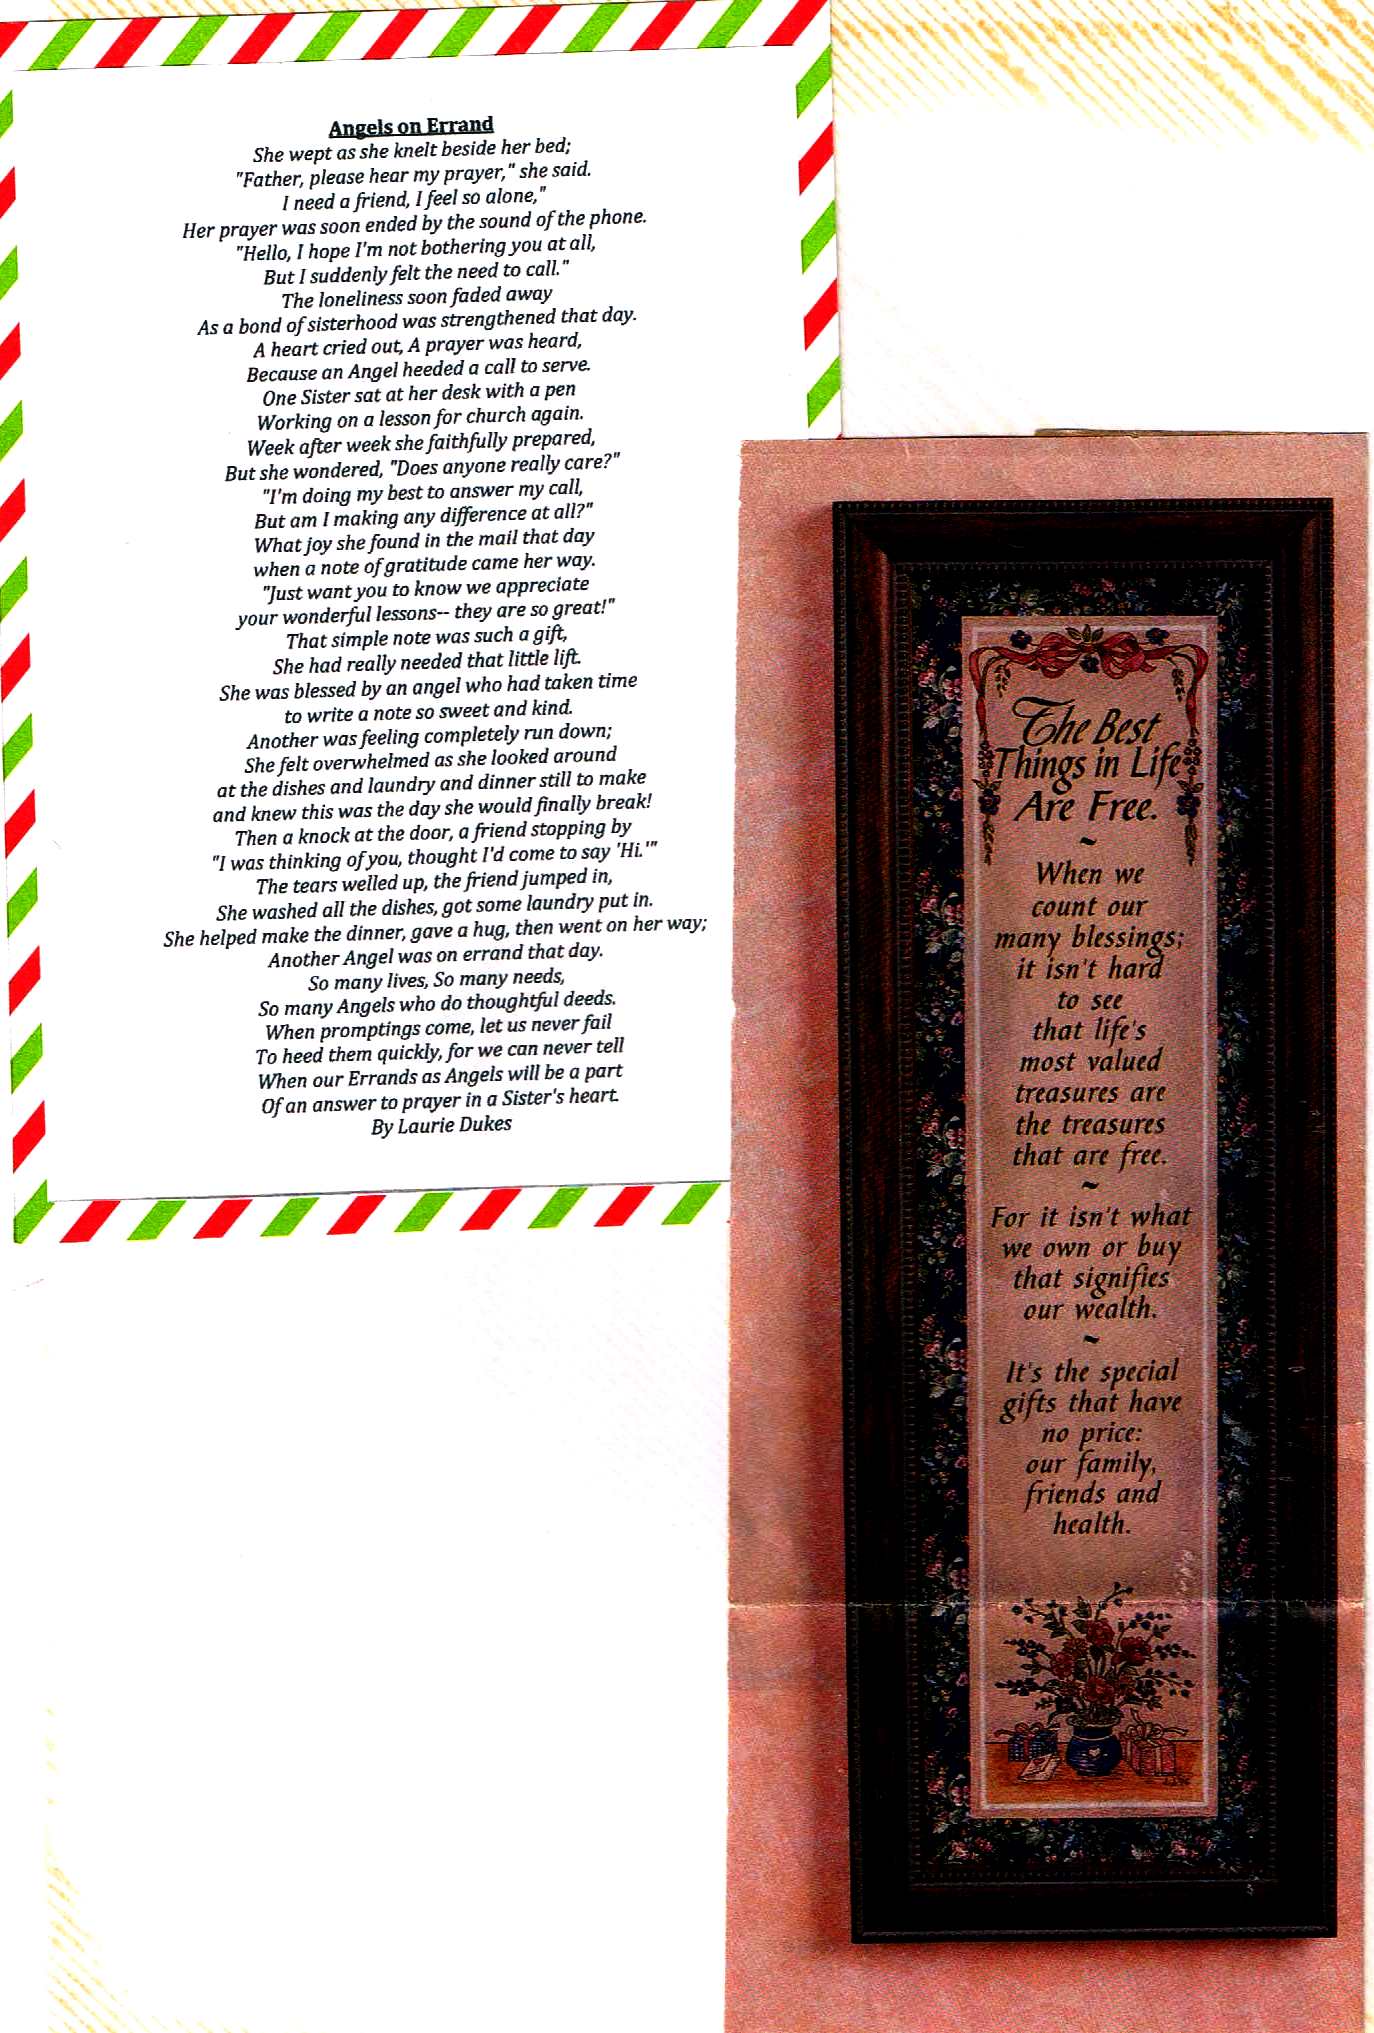 Angels on Errand
She wept as she knelt beside her bed;
"Father, please hear my prayer," she said.
I need a friend, I feel so alone,"
Her prayer was soon ended by the sound of the phone.
"Hello, I hope I'm not bothering you at all,
But I suddenly felt the need to call."
The loneliness soon faded away
As a bond of sisterhood was strengthened that day.
A heart cried out, A prayer was heard,
Because an Angel heeded a call to serve.
One Sister sat at her desk with a pen
Working on a lesson for church again.
Week after week she faithfully prepared,
But she wondered, "Does anyone really care?"
"I'm doing my best to answer my call,
But am I making any difference at all?"
What joy she found in the mail that day
when a note of gratitude came her way.
"Just want you to know we appreciate
your wonderful lessons-- they are so great!"
That simple note was such a gift,
She had really needed that little lift.
She was blessed by an angel who had taken time
to write a note so sweet and kind.
Another was feeling completely run down;
She felt overwhelmed as she looked around
at the dishes and laundry and dinner still to make
and knew this was the day she would finally break!
Then a knock at the door, a friend stopping by
"I was thinking of you, thought I'd come to say 'Hi.'"
The tears welled up, the friend jumped in,
She washed all the dishes, got some laundry put in.
She helped make the dinner, gave a hug, then went on her way;
Another Angel was on errand that day.
So many lives, So many needs,
So many Angels who do thoughtful deeds.
When promptings come, let us never fail
To heed them quickly, for we can never tell
When our Errands as Angels will be a part
Of an answer to prayer in a Sister's heart.
By Laurie Dukes
The Best
Things in Life
Are Free.
~
When we
count our
many blessings;
it isn't hard
to see
that life's
most valued
treasures are
the treasures
that are free.
~
For it isn't what
we own or buy
that signifies
our wealth.
~
It's the special
gifts that have
no price:
our family,
friends and
health.